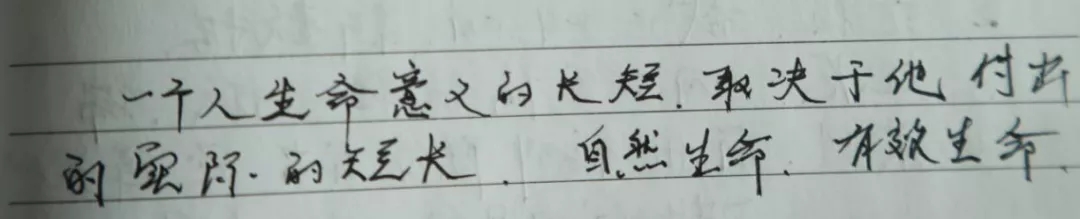 一个人生命意义的长短.取决于他付出
的实际.的短长.自然生命.有效生命.